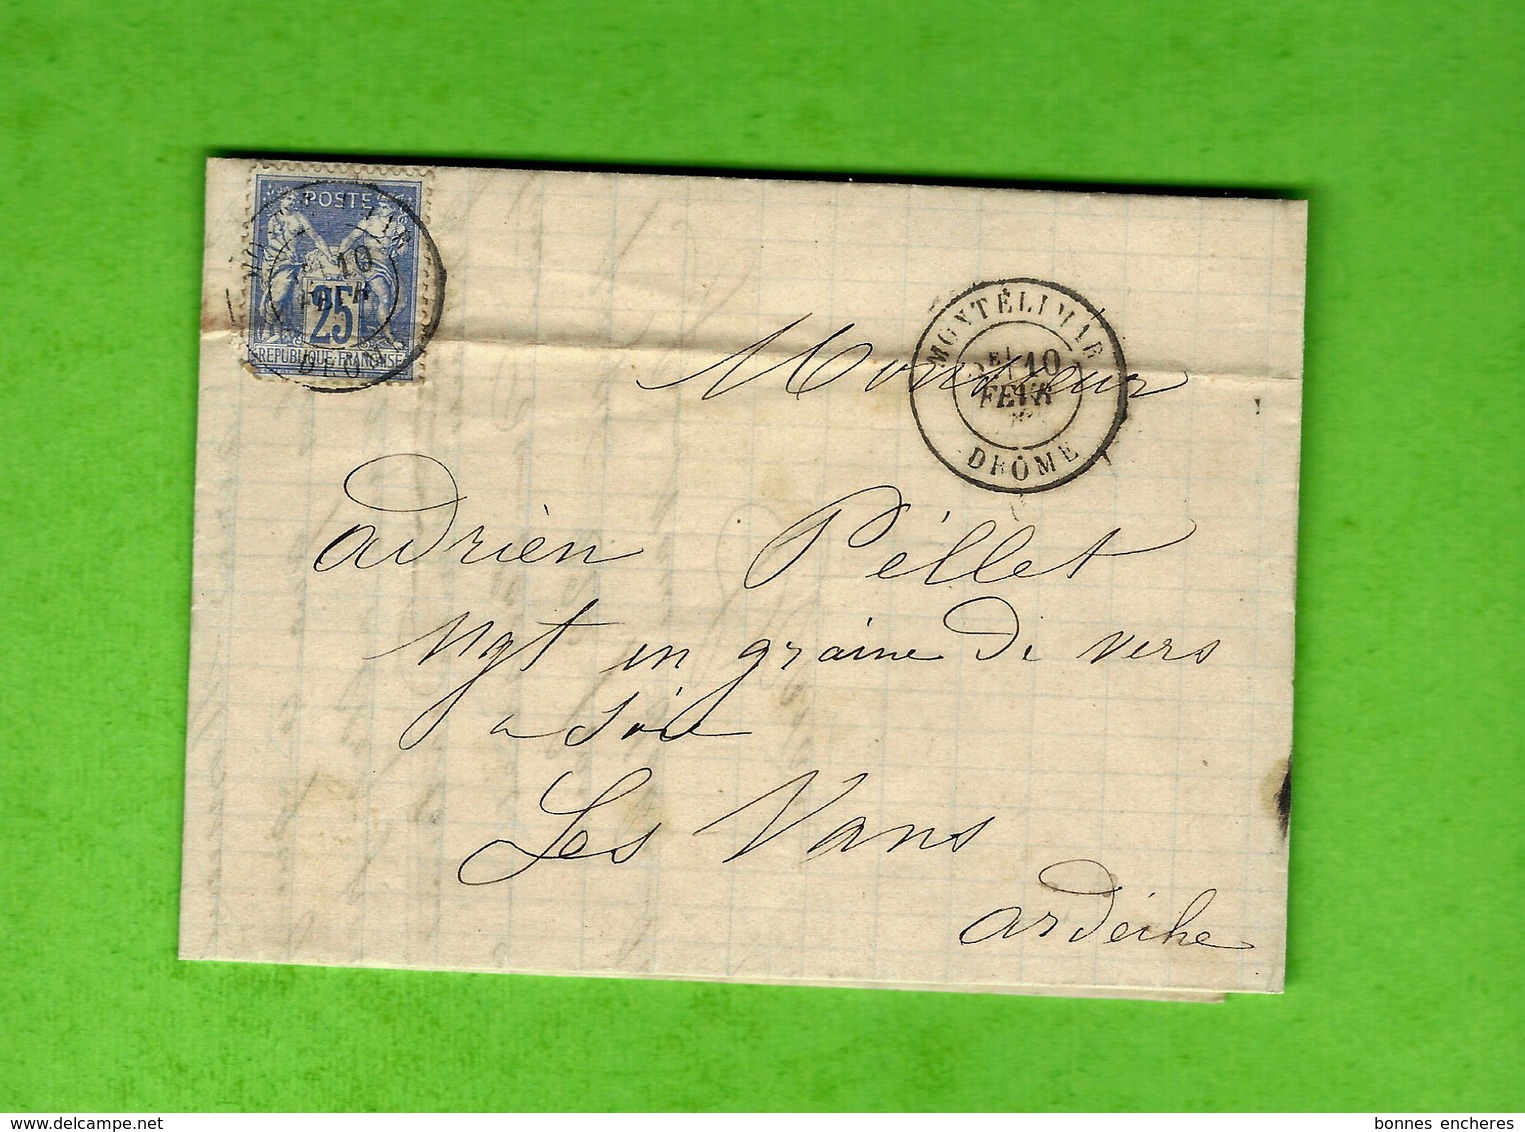 POSTE
10
25
REPUBLIQUE FRANÇAISE
MONTÉLIMAR
10
FEVR
DRÔME
Monsieur
adrien Péllet
Ngt en graine de vers
a soie
Les Vans
ardèche
bonnes encheres